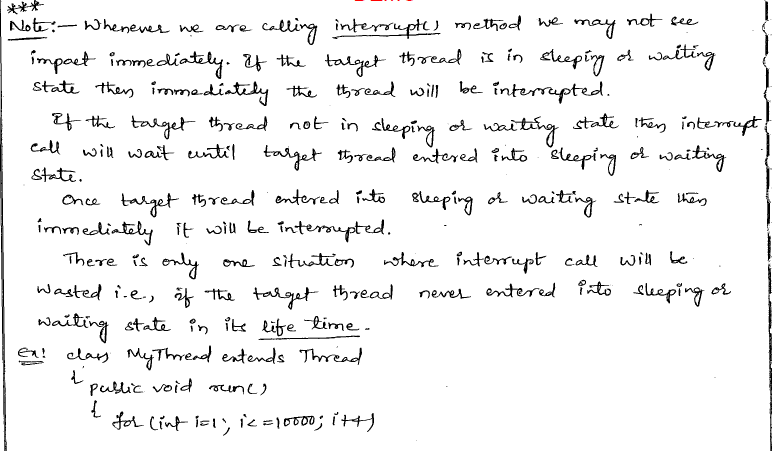 ***
Note:- Whenever we are calling interrupt() method we may not see
impact immediately. If the target thread is in sleeping or waiting
state then immediately the thread will be interrupted.
If the target thread not in sleeping or waiting state then interrupt
call will wait until target thread entered into sleeping or waiting
state.
Once target thread entered into sleeping or waiting state then
immediately it will be interrupted.
There is only one situation where interrupt call will be
wasted i.e., if the target thread never entered into sleeping or
waiting state in its life time.
Ex: class MyThread extends Thread
{
public void run()
{
for (int i=1; i<=10000; i++)